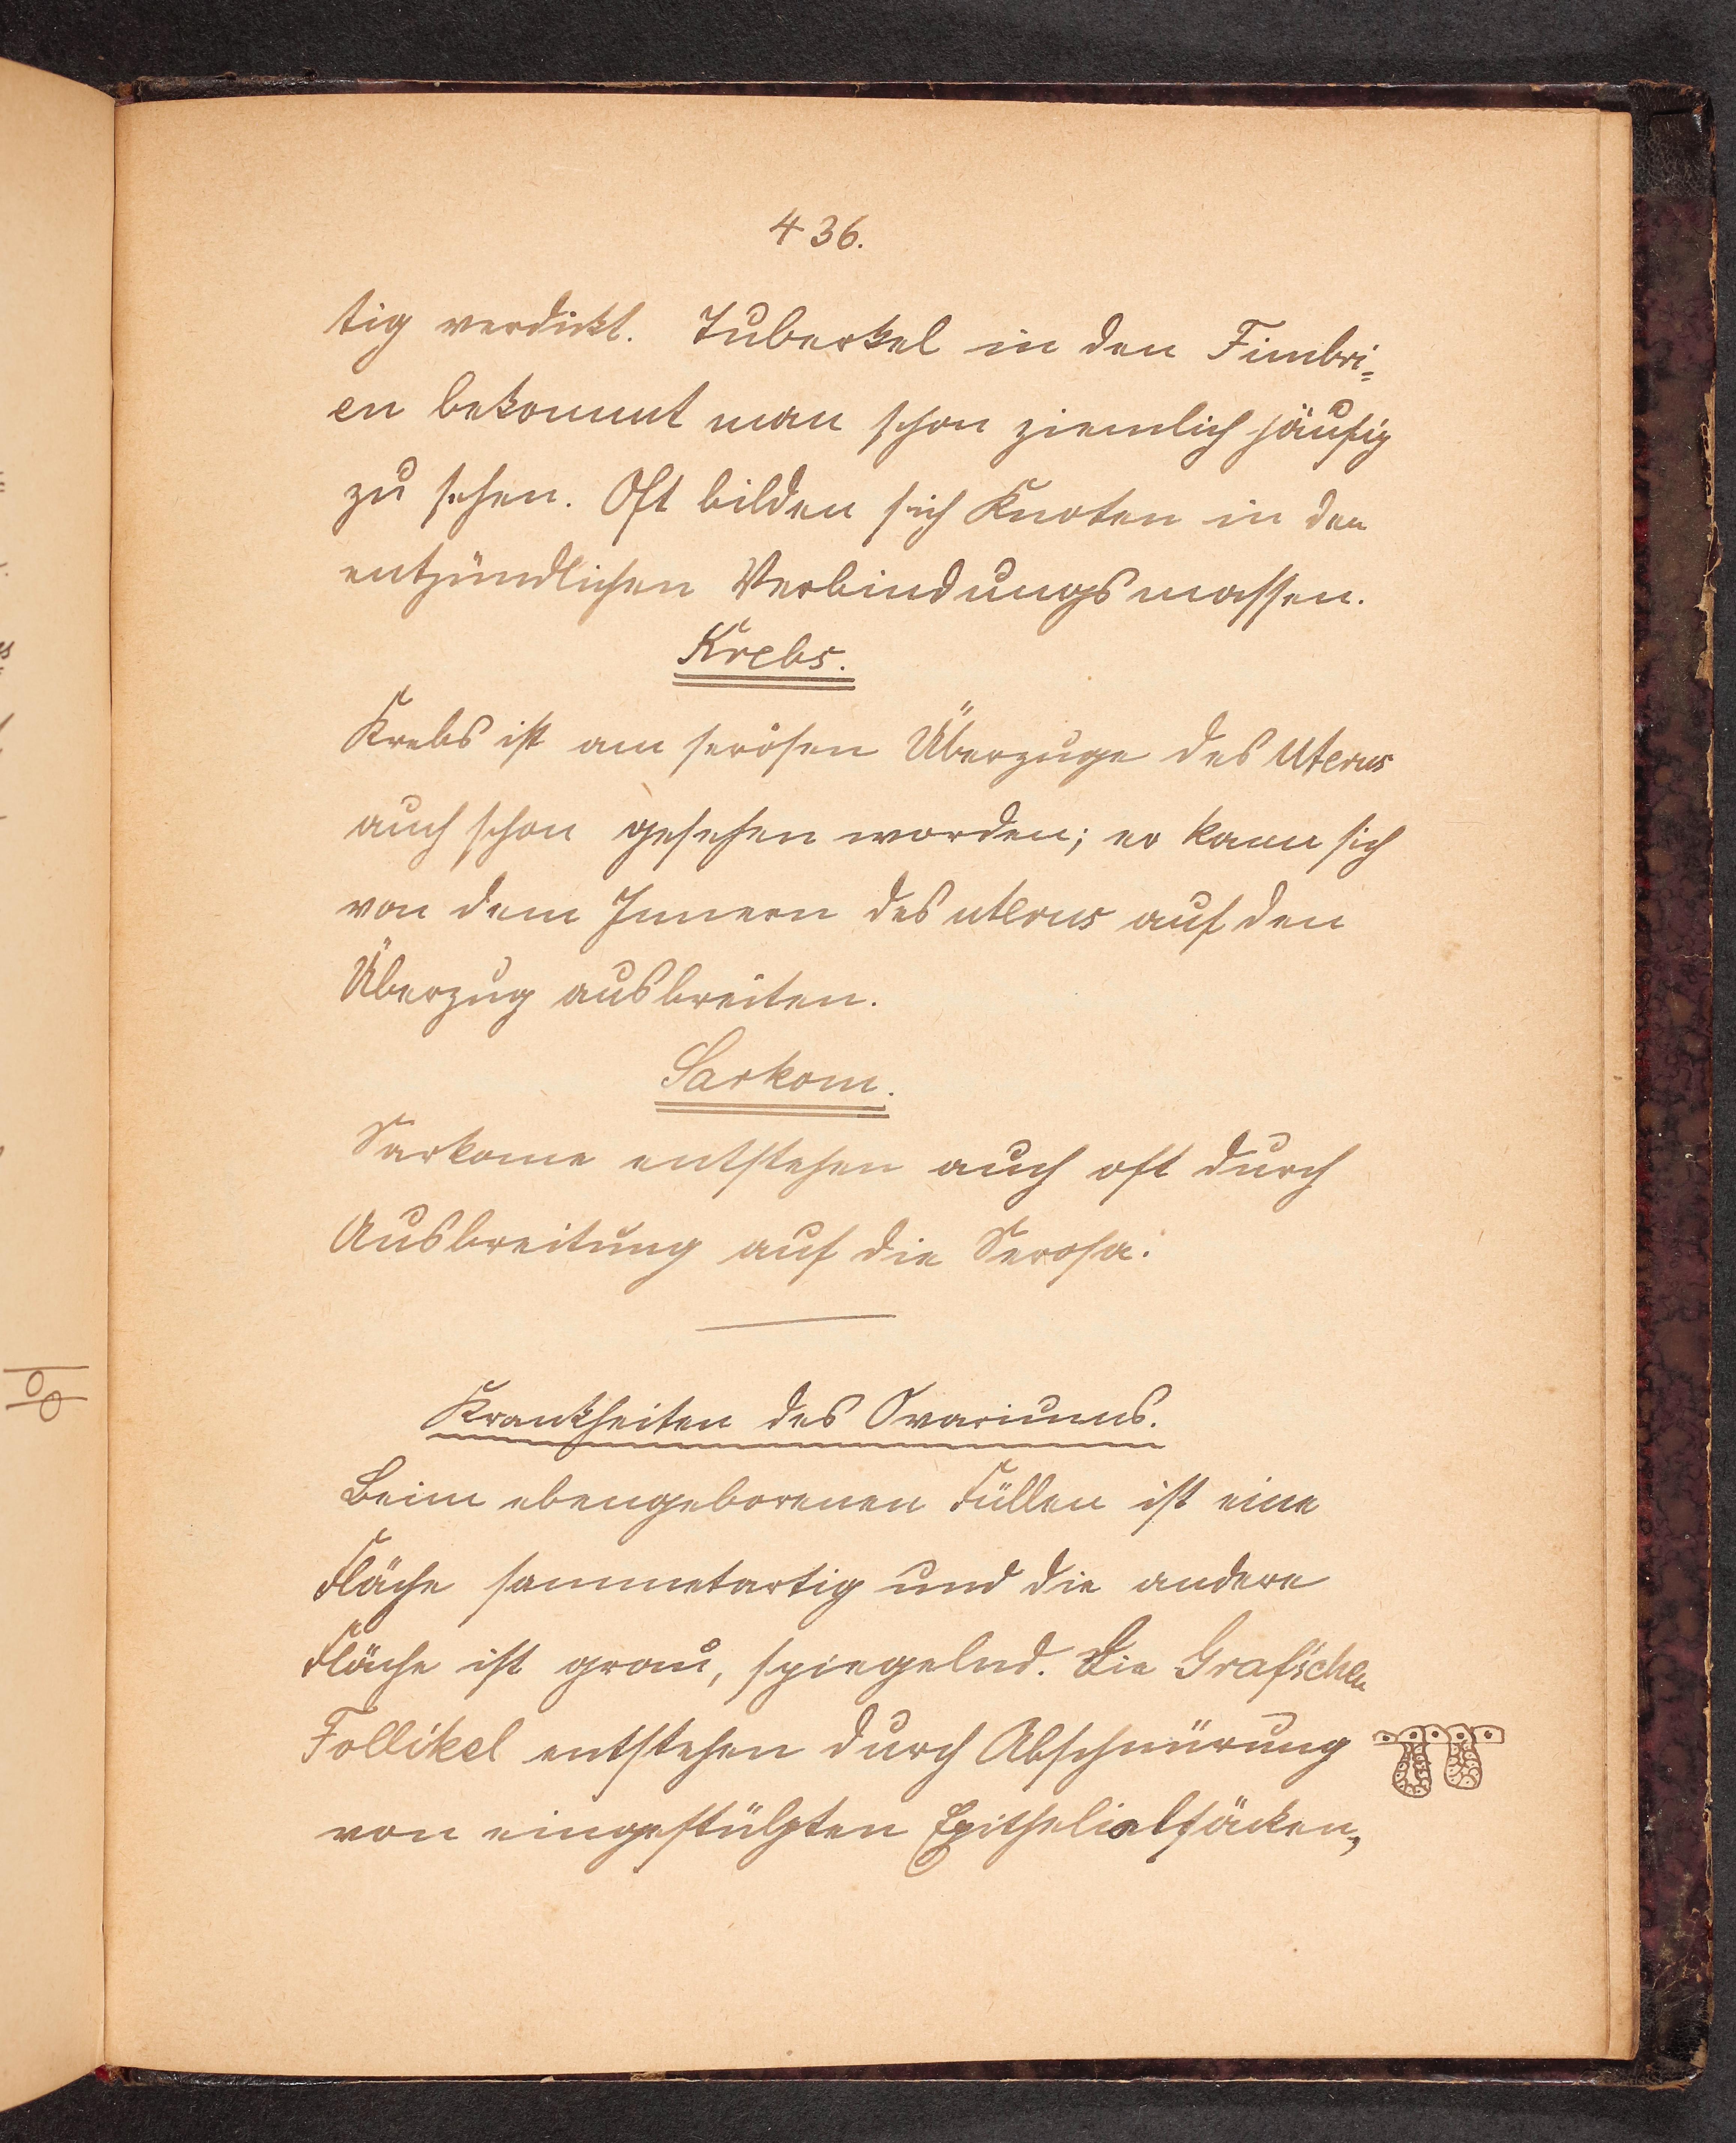 436.
tig verdickt. Tuberkel in den Fimbri=
en bekommt man schon ziemlich häufig
zu sehen. Oft bilden sich Knoten in den
entzündlichen Verbindungsmassen.
Krebs.
Krebs ist am serösen Überzuge des Uterus
auch schon gesehen worden; er kann sich
von dem Innern des uterus auf den
Überzug ausbreiten.
Sarkom.
Sarkome entstehen auch oft durch
Ausbreitung auf die Serosa.
Krankheiten des Ovariums.
Beim ebengeborenen Füllen ist eine
Fläche sammetartig und die andere
Fläche ist grau, spiegelnd. Die Graf'schen
Follikel entstehen durch Abschnürung
von eingestülpten Epithelialsäcken,